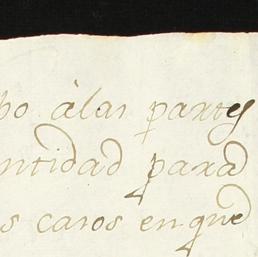 bo àlas partes
ntidad para
s casos en qued